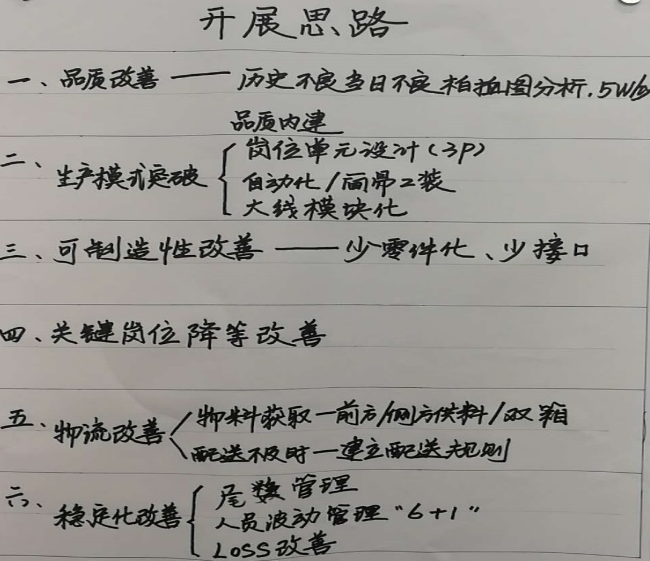 开展思路
一、品质改善 —— 历史不良当日不良柏拉图分析.5W/
品质内建
二、生产模式突破
岗位单元设计(3P)
自动化/工装
大线模块化
三、可制造性改善 —— 少零件化、少接口
四、关键岗位降等改善
五、物流改善
物料获取—前方/侧方供料/双箱
配送不及时—建立配送规则
六、稳定化改善
尾数管理
人员波动管理“6+1”
LOSS改善